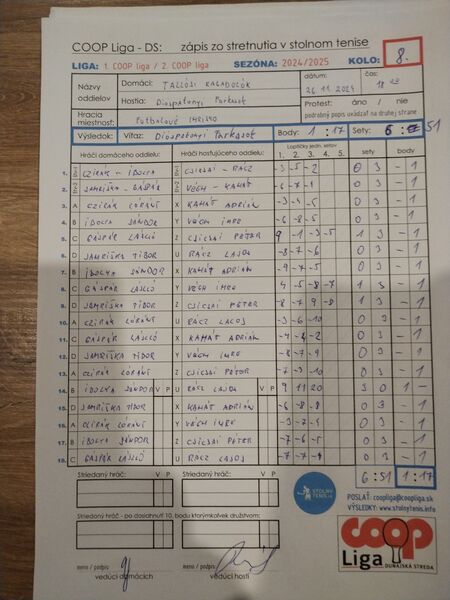 COOP Liga - DS: zápis zo stretnutia v stolnom tenise
LIGA: 1. COOP liga / 2. COOP liga SEZÓNA: 2024/2025 KOLO: 8.
Názvy oddielov
Domáci: TALLÓSI KALADOLÓK
Hostia: Dióspatonyi Parkasok
dátum: 26 11 2024
čas: 18
Hracia miestnosť:
Futbalové ihrisko
Protest: áno / nie
podrobný popis uvádzať na druhej strane
Výsledok: Víťaz: Dióspatonyi Parkasok Body: 1 : 17 Sety: 6 : 51
Hráči domáceho oddielu: Hráči hosťujúceho oddielu: Loptičky jedn. setov sety body
1. 2. 3. 4. 5.
1. CZIRÁK - IBOLYA CSICSAI - RÁCZ -3 -5 -2 0 3 - 1
2. JAMRIŠKA - GÁSPÁR VÉGH - KAMÁT -6 -7 -1 0 3 - 1
3. A CZIRÁK LÓRÁNT X KAMÁT ADRIÁN -3 -4 -5 0 3 - 1
4. B IBOLYA SÁNDOR Y VÉGH IMRE -6 -8 -5 0 3 - 1
5. C GÁSPÁR LÁSZLÓ Z CSICSAI PÉTER 9 -1 -3 -5 1 3 - 1
6. D JAMRIŠKA TIBOR U RÁCZ LAJOS -8 -7 -6 0 3 - 1
7. B IBOLYA SÁNDOR X KAMÁT ADRIÁN -9 -7 -5 0 3 - 1
8. C GÁSPÁR LÁSZLÓ Y VÉGH IMRE 4 -5 -8 -7 1 3 - 1
9. D JAMRIŠKA TIBOR Z CSICSAI PÉTER -8 -7 9 -8 1 3 - 1
10. A CZIRÁK LÓRÁNT U RÁCZ LAJOS -3 -6 -10 0 3 - 1
11. C GÁSPÁR LÁSZLÓ X KAMÁT ADRIÁN -4 -8 -2 0 3 - 1
12. D JAMRIŠKA TIBOR Y VÉGH IMRE -8 -7 -9 0 3 - 1
13. A CZIRÁK LÓRÁNT Z CSICSAI PÉTER -7 -4 -8 0 3 - 1
14. B IBOLYA SÁNDOR V P U RÁCZ LAJOS V P 9 11 20 3 0 1 -
15. D JAMRIŠKA TIBOR X KAMÁT ADRIÁN -6 -8 -8 0 3 - 1
16. A CZIRÁK LÓRÁNT Y VÉGH IMRE -3 -7 -4 0 3 - 1
17. B IBOLYA SÁNDOR Z CSICSAI PÉTER -7 -6 -5 0 3 - 1
18. C GÁSPÁR LÁSZLÓ U RÁCZ LAJOS -7 -7 -8 0 3 - 1
6 : 51 1 : 17
Striedaný hráč: V P Striedaný hráč: V P
STOLNÝ TENIS
POSLAŤ: coopliga@coopliga.sk
VÝSLEDKY: www.stolnytenis.info
Striedaný hráč - po dosiahnutí 10. bodu ktorýmkoľvek družstvom:
coop
Liga
DUNAJSKÁ STREDA
meno / podpis: meno / podpis:
vedúci domácich vedúci hostí